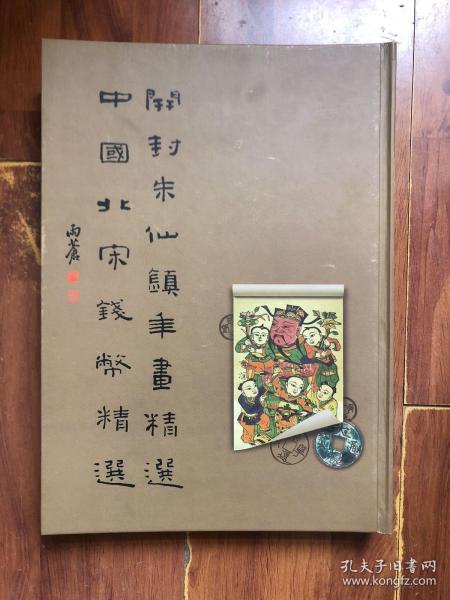 開封朱仙鎮年畫精選
中國北宋錢幣精選
雨蒼
孔夫子旧书网
www.kongfz.com